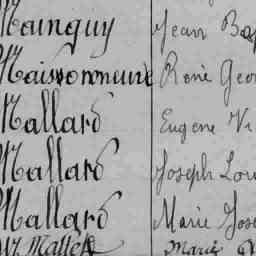 Mainguy Jean Bap
Maisonneuve René Geor
Mallard Eugene Vi
Mallard Joseph Lou
Mallard Marie Jose
Marie